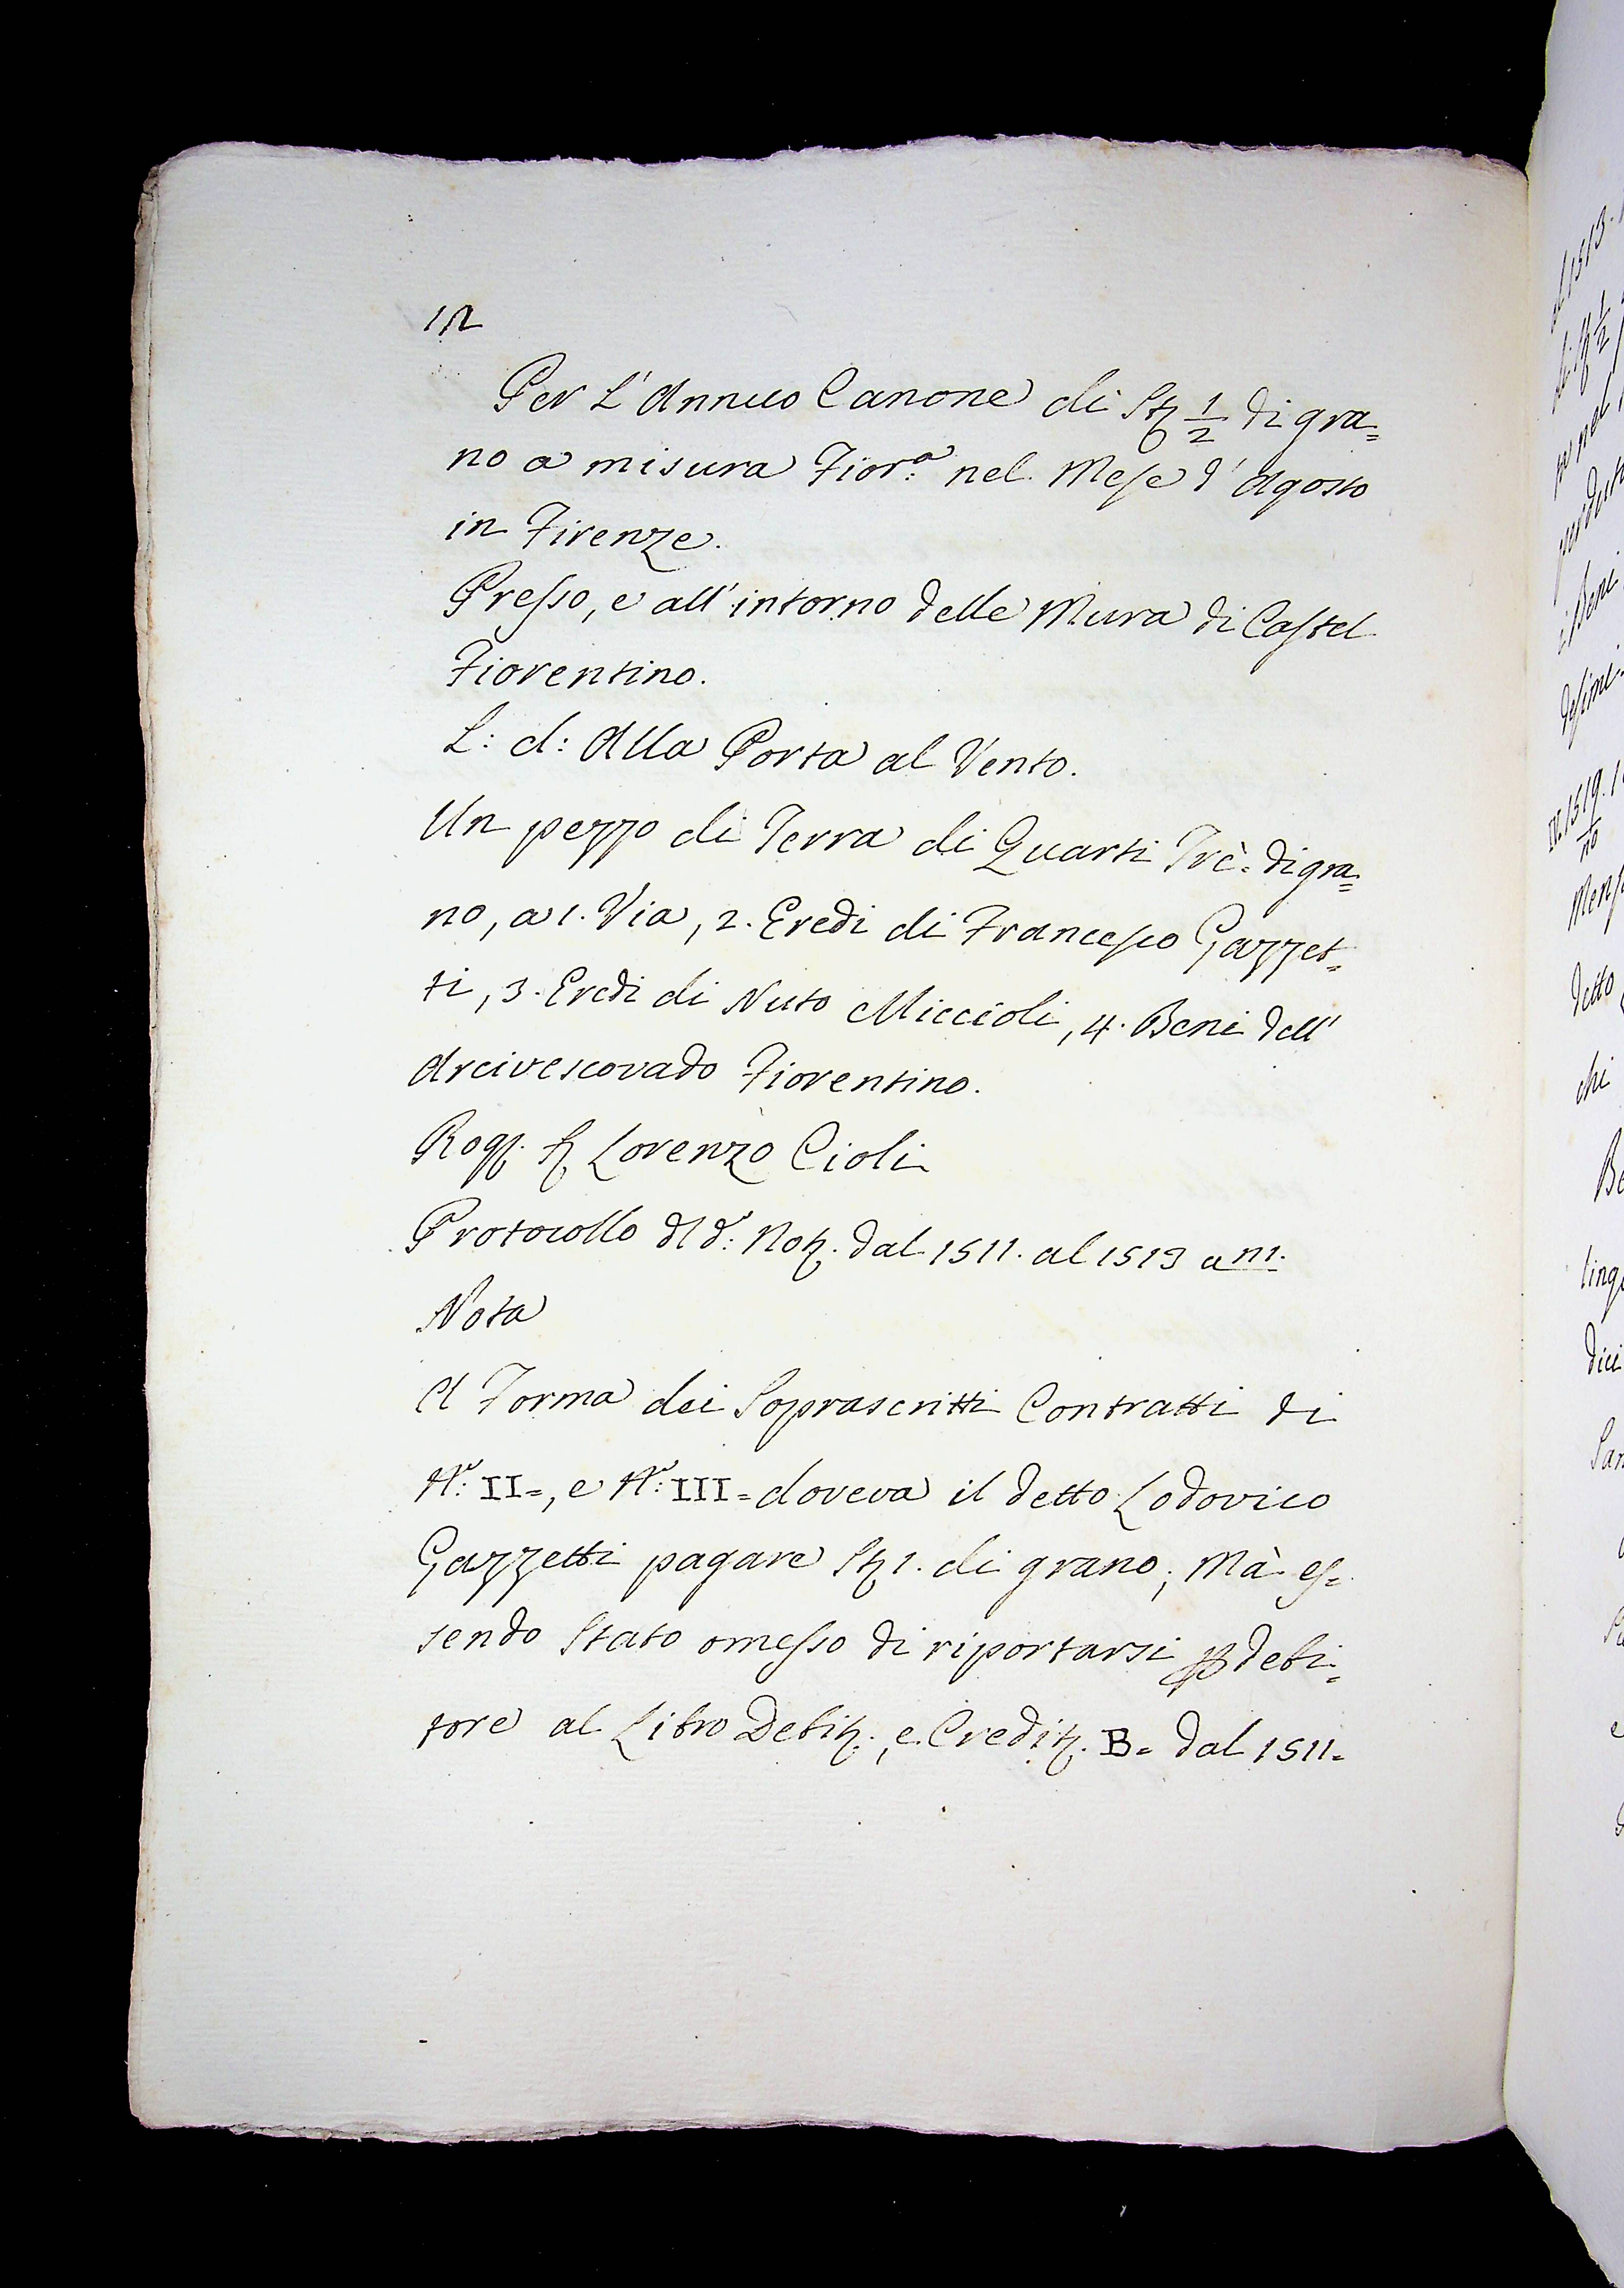 12
Per L'Annuo Canone di St. 1/2 di gra=
no a misura Fior.ª nel Mese d'Agosto
in Firenze.
Presso, e all'intorno delle Mura di Castel
Fiorentino.
L: d: Alla Porta al Vento.
Un pezzo di Terra di Quarti Trè di gra=
no, a 1. Via, 2. Eredi di Francesco Gazzet=
ti, 3. Eredi di Nuto Miccioli, 4. Beni dell'
Arcivescovado Fiorentino.
Rog. S. Lorenzo Cioli
Protocollo dl d.º Not. dal 1511. al 1513 a
Nota
A Forma dei Soprascritti Contratti di
N.º II=, e N.º III= doveva il detto Lodovico
Gazzetti pagare St. 1. di grano; Mà es=
sendo Stato omesso di riportarsi p debi=
tore al Libro Debit., e Credit. B= dal 1511=